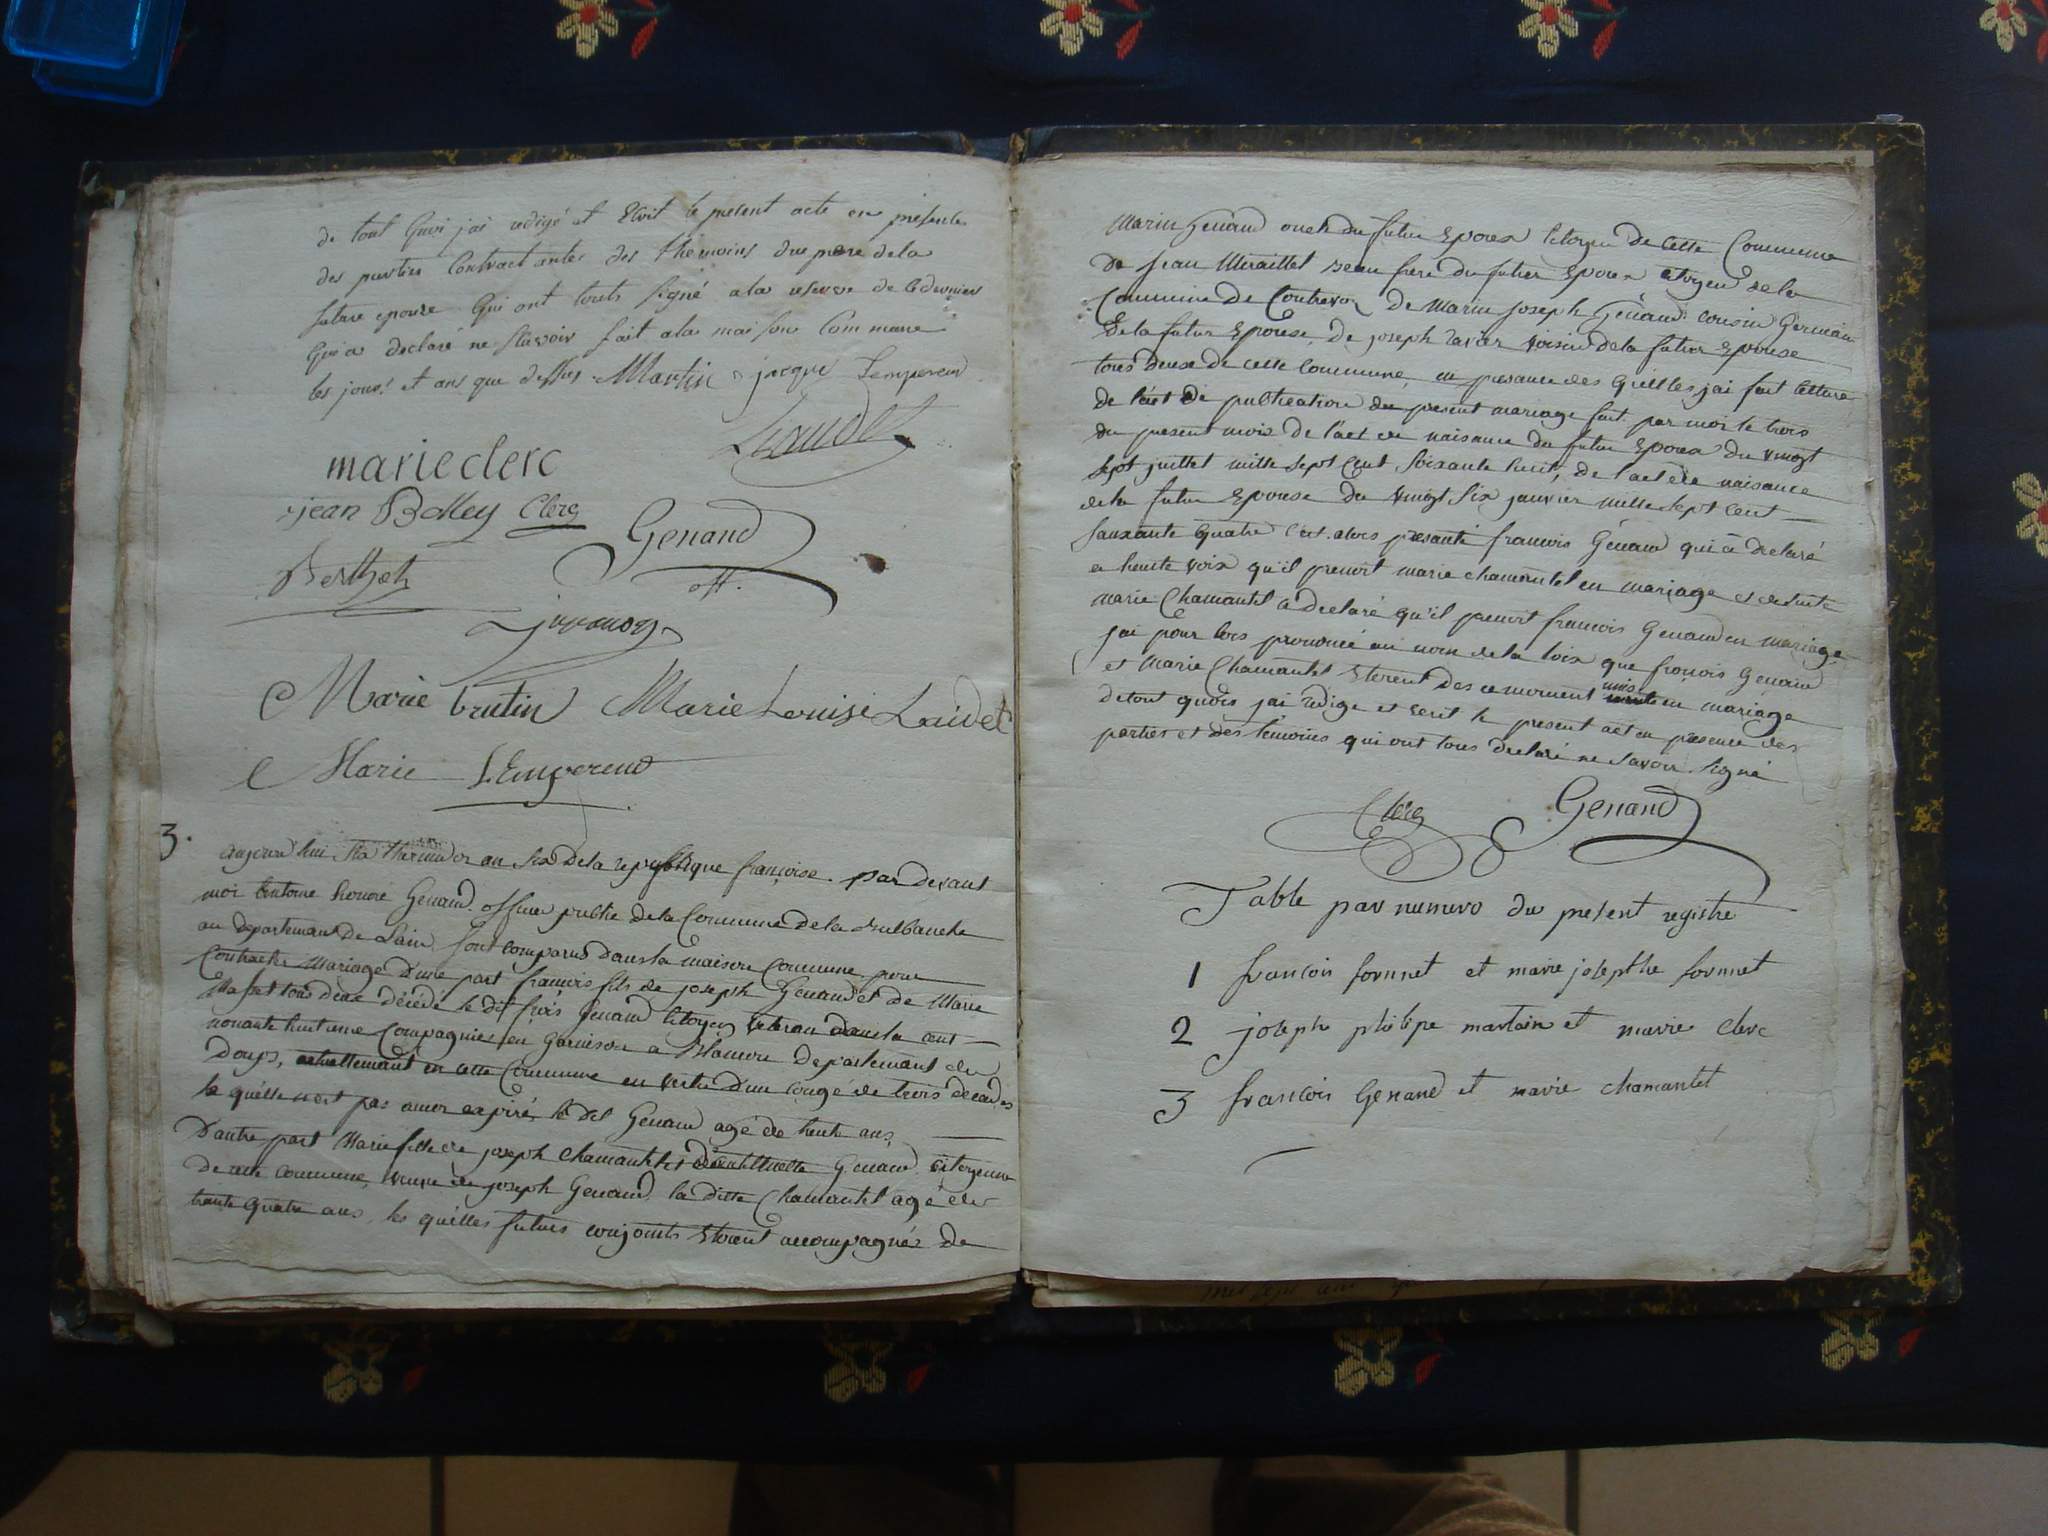 de tout quoi j'ai redigé et Ecrit le present acte en presence
des parties Contractantes des themoins du pere de la
future epouse qui ont touts signé a la reserve de ce dernier
qui a declaré ne scavoir fait a la maison Commune
les jours et ans que dessus Martin jacque Lempereur
marie clerc
jean Bolley Clerc
Genand
off.
Berthet
Marie brutin Marie Louise Laidet
Marie LEmpereur
3.
aujourd'hui thermidor an six de la republique françoise par devant
moi antoine honoré Genand officier public de la Commune de la
au departement de Lain sont comparus dans la maison Commune pour
Contracter Mariage d'une part francois fils de joseph Genand et de Marie
tous deux décédé le dit frois Genand Citoyen veteran dans la cent
nonante huitieme Compagnie en garnison a Blamon departement du
Doups, actuellement en cette Commune en vertu d'un congé de trois decades
le quelle n'est pas ancor expiré, le dit Genand agé de trente ans,
D'autre part Marie fille de joseph Chamantel et Genand citoyenne
de cette commune, veuve de joseph Genand la ditte Chamantel agé de
trante quatre ans, les quelles futurs conjoints etoient accompagnés de
Marin Genand oncle du futur epoux citoyen de cette Commune
de jean Miraillet beau frere du futur epoux citoyen de la
Commune de Contrevoz de Marin joseph Genand cousin Germain
de la futur epouse, de joseph ravier voisin de la futur epouse
tous deux de cette commune, en presance des quelles j'ai fait lecture
de l'act de publication du present mariage fait par moi le trois
du present mois de l'act de naisance du futur epoux du vingt
sept juillet mille sept cent soixante huit, de l'act de naisance
de la futur epouse du vingt six janvier mille sept cent
sauxante quatre c'est alors presanté francois Genand qui a declaré
a haute voix qu'il prenoit marie chamantel en mariage et de suite
marie Chamantel a declaré qu'il prenoit francois Genand en mariage
j'ai pour lors prononcé au nom de la loix que francois Genand
et Marie Chamantel etoient des ce moment unis en mariage
de tout quois j'ai redige et ecrit le present act en presence des
parties et des temoins qui ont tous declaré ne savoir signé
Clerc Genand
Table par numero du present registre
1 francois fornnet et marie josepthe fornnet
2 joseph philipe martain et marie clerc
3 francois Genand et marie chamantet